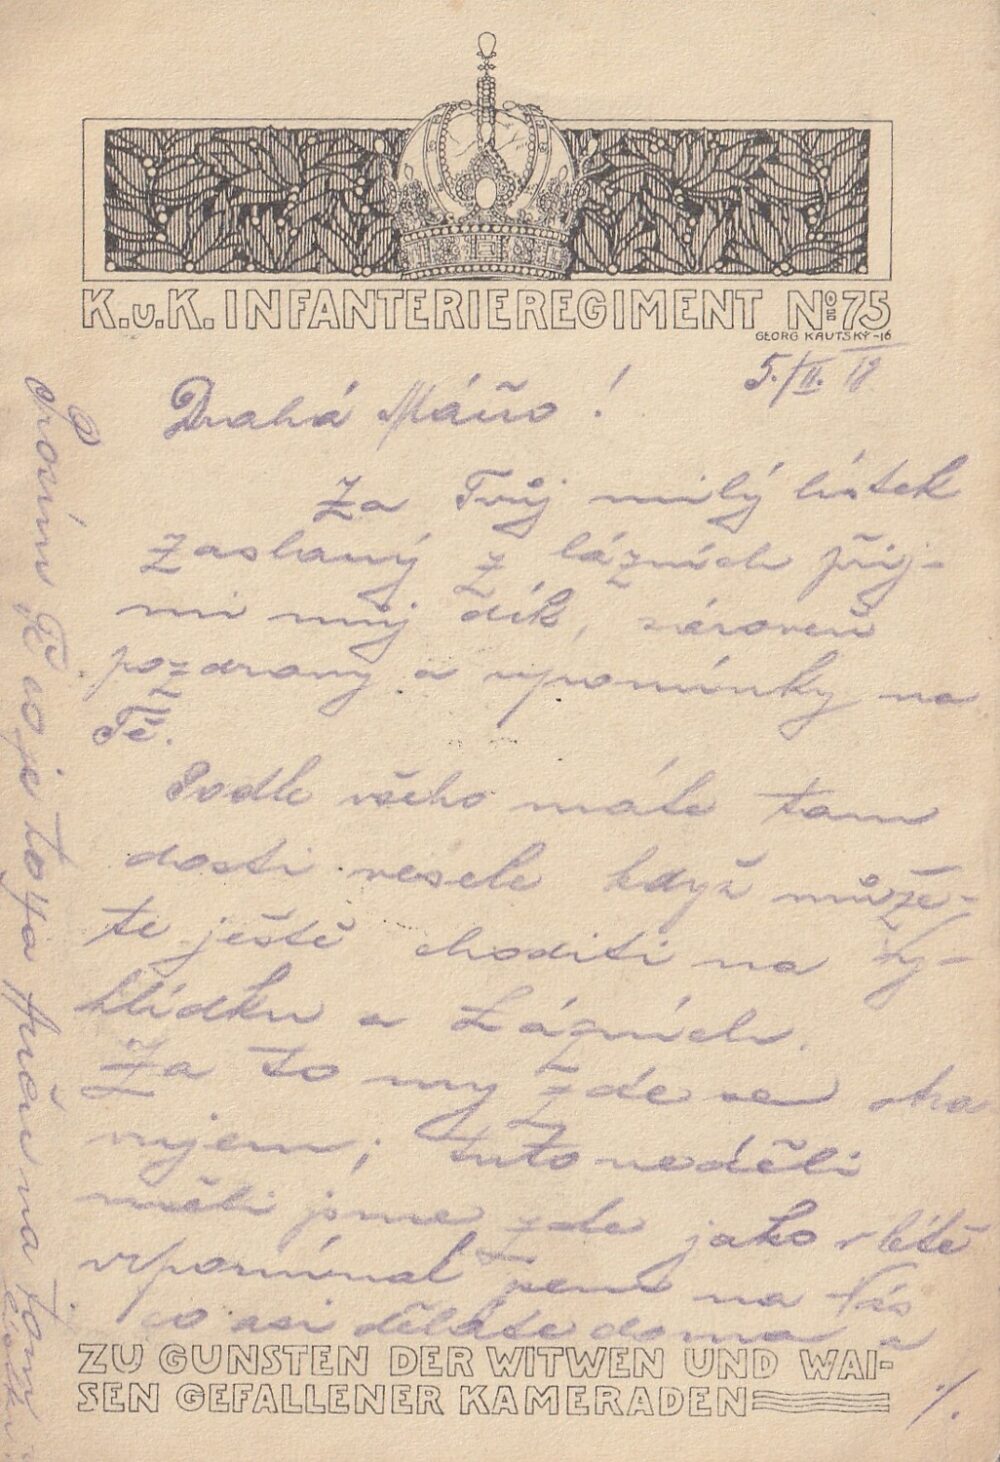 K.u.K. INFANTERIEREGIMENT No 75
GEORG KAUTSKÝ-16
5./II. 18
Drahá Máňo!
Za Tvůj milý lístek
zaslaný z lázních přij-
mi můj dík, zároveň
pozdravy a vpomínky na
Tě.
Podle všeho máte tam
dosti vesele když může-
te ještě choditi na vy-
hlídku a Lázních.
Za to my zde se
tuto neděli
měli jsme zde jako v létě
vzpomínal jsem na Vás
co asi děláte doma a
ZU GUNSTEN DER WITWEN UND WAI-
SEN GEFALLENER KAMERADEN
./.
Prosím Tě co je to za na tom